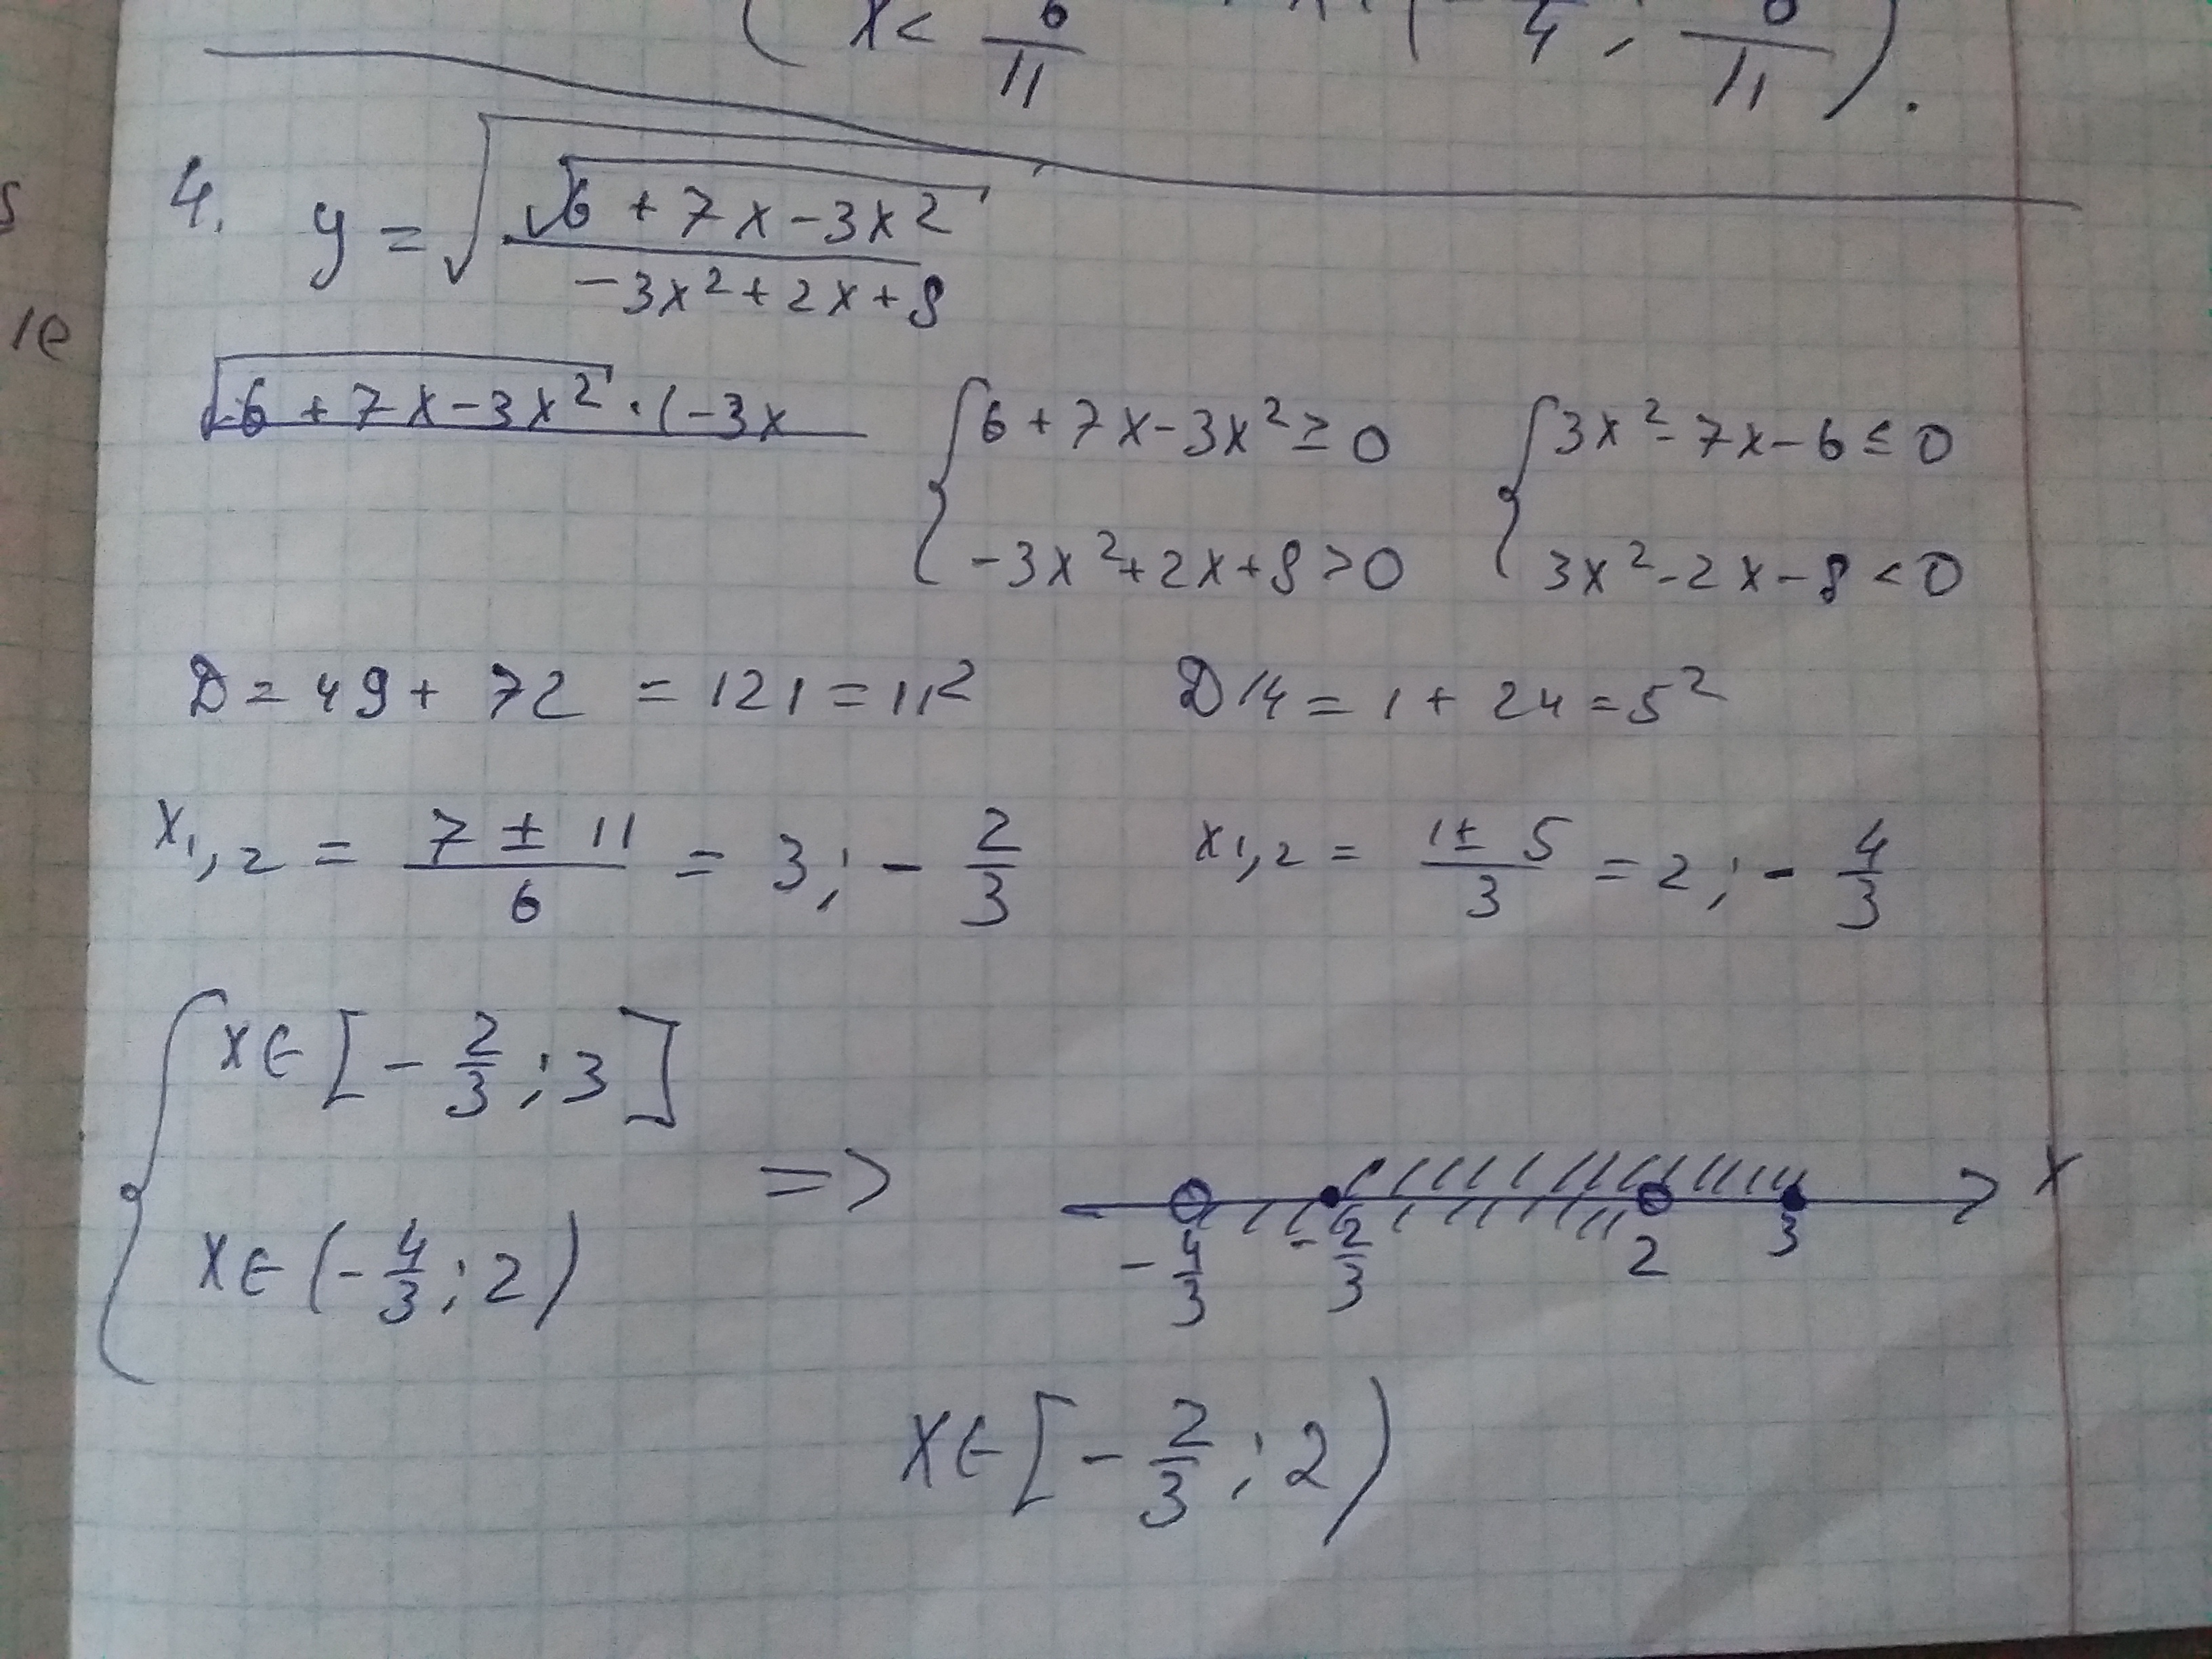 x < 6/11
4. y = √(√(6 + 7x - 3x²) / (-3x² + 2x + 8))
√(6 + 7x - 3x²) · (-3x { 6 + 7x - 3x² ≥ 0 { 3x² - 7x - 6 ≤ 0
-3x² + 2x + 8 > 0 3x² - 2x - 8 < 0
D = 49 + 72 = 121 = 11² D/4 = 1 + 24 = 5²
x₁,₂ = (7 ± 11)/6 = 3; - 2/3 x₁,₂ = (1 ± 5)/3 = 2; - 4/3
{ x ∈ [- 2/3 ; 3]
=> x
x ∈ (- 4/3 ; 2) - 4/3 - 2/3 2 3
x ∈ [- 2/3 ; 2)